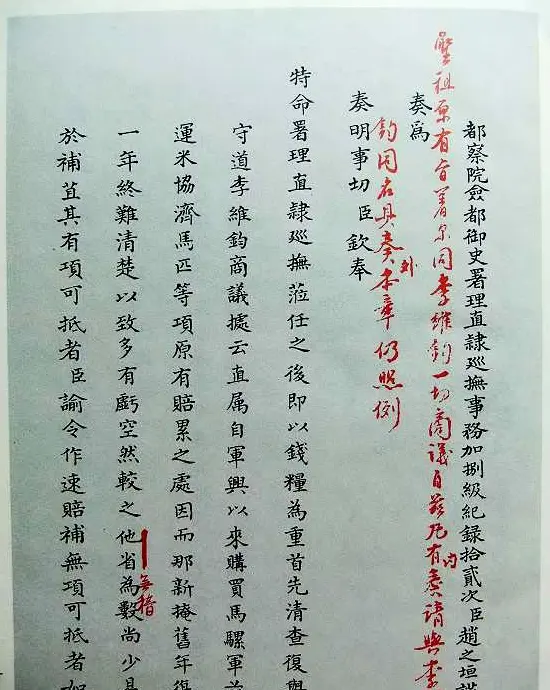 都察院僉都御史署理直隸巡撫事務加捌級紀錄拾貳次臣趙之垣謹
聖祖原有旨著尔同李維鈞一切商議自茲凡有內奏請與李
奏為
鈞同名具奏外本章仍照例
奏明事切臣欽奉
特命署理直隸巡撫蒞任之後即以錢糧為重首先清查復與
守道李維鈞商議據云直属自軍興以來購買馬騾軍前
運米協濟馬匹等項原有賠累之處因而那新掩舊年復
一年終難清楚以致多有虧空然較之他省為數尚少
於補苴其有項可抵者臣諭令作速賠補無項可抵者